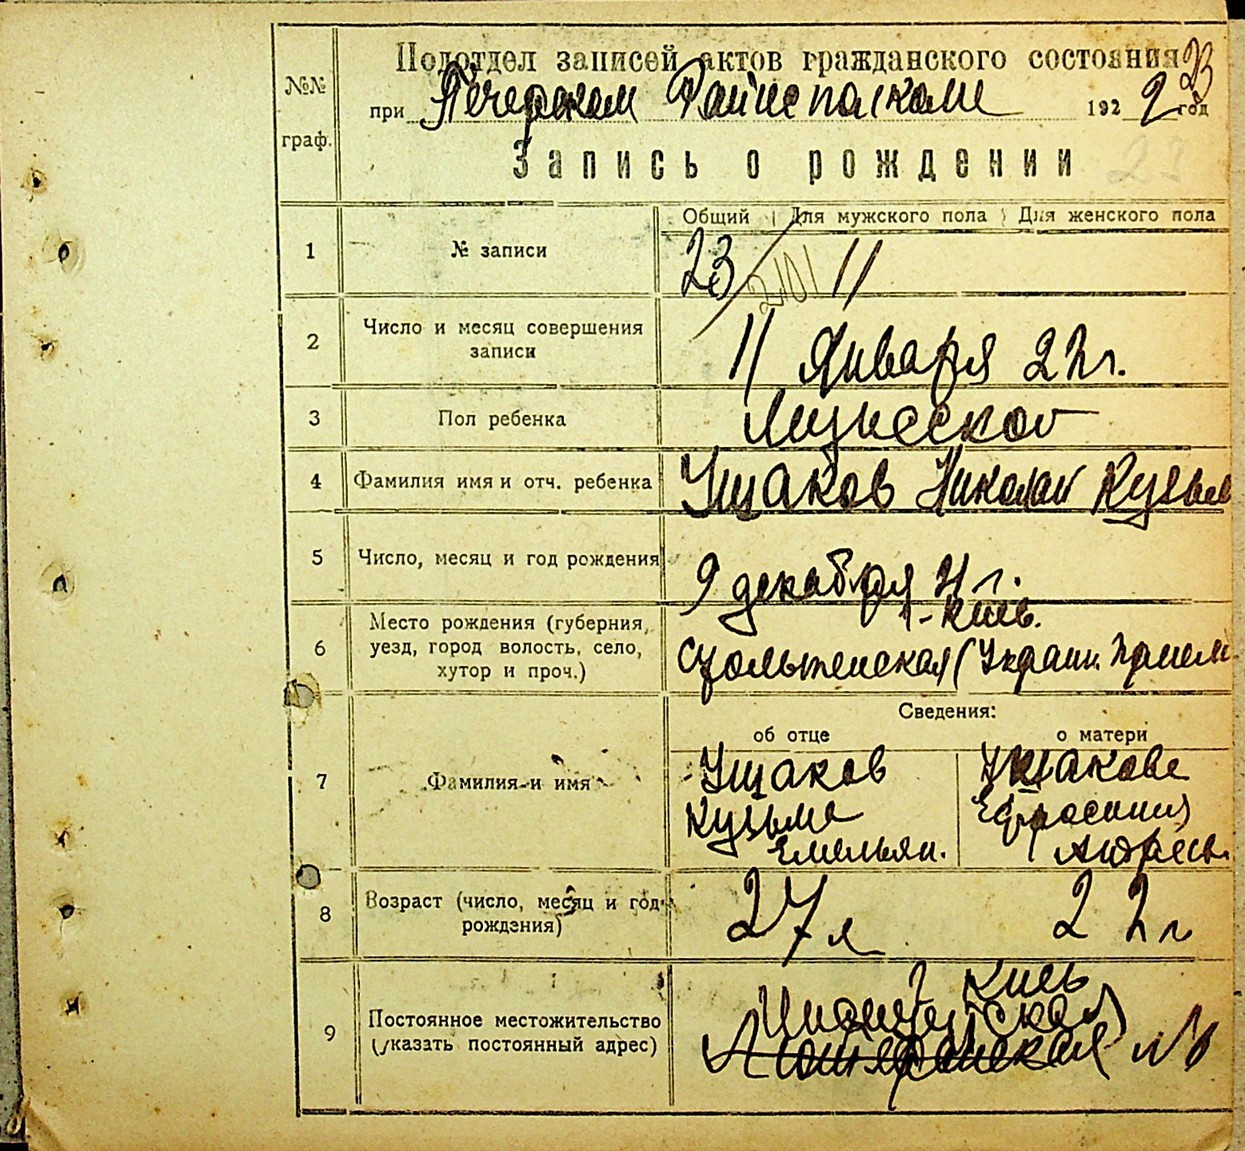 Подотдел записей актов гражданского состояния 23
при Печерском Райисполкоме 1922 год
№№ граф.
Запись о рождении 23
Общий Для мужского пола Для женского пола
1 № записи 23 2101 11
2 Число и месяц совершения записи 11 Января 22 г.
3 Пол ребенка Мужеской
4 Фамилия имя и отч. ребенка Ушаков Николай Кузьм
5 Число, месяц и год рождения 9 декабря 21 г.
6 Место рождения (губерния, уезд, город волость, село, хутор и проч.) г. Киев.
Сведения:
об отце о матери
7 Фамилия и имя Ушаков Ушакова
Кузьма Ефросиния
Емельян. Андреев.
8 Возраст (число, месяц и год рождения) 27 л 22 г
9 Постоянное местожительство (указать постоянный адрес) Киев